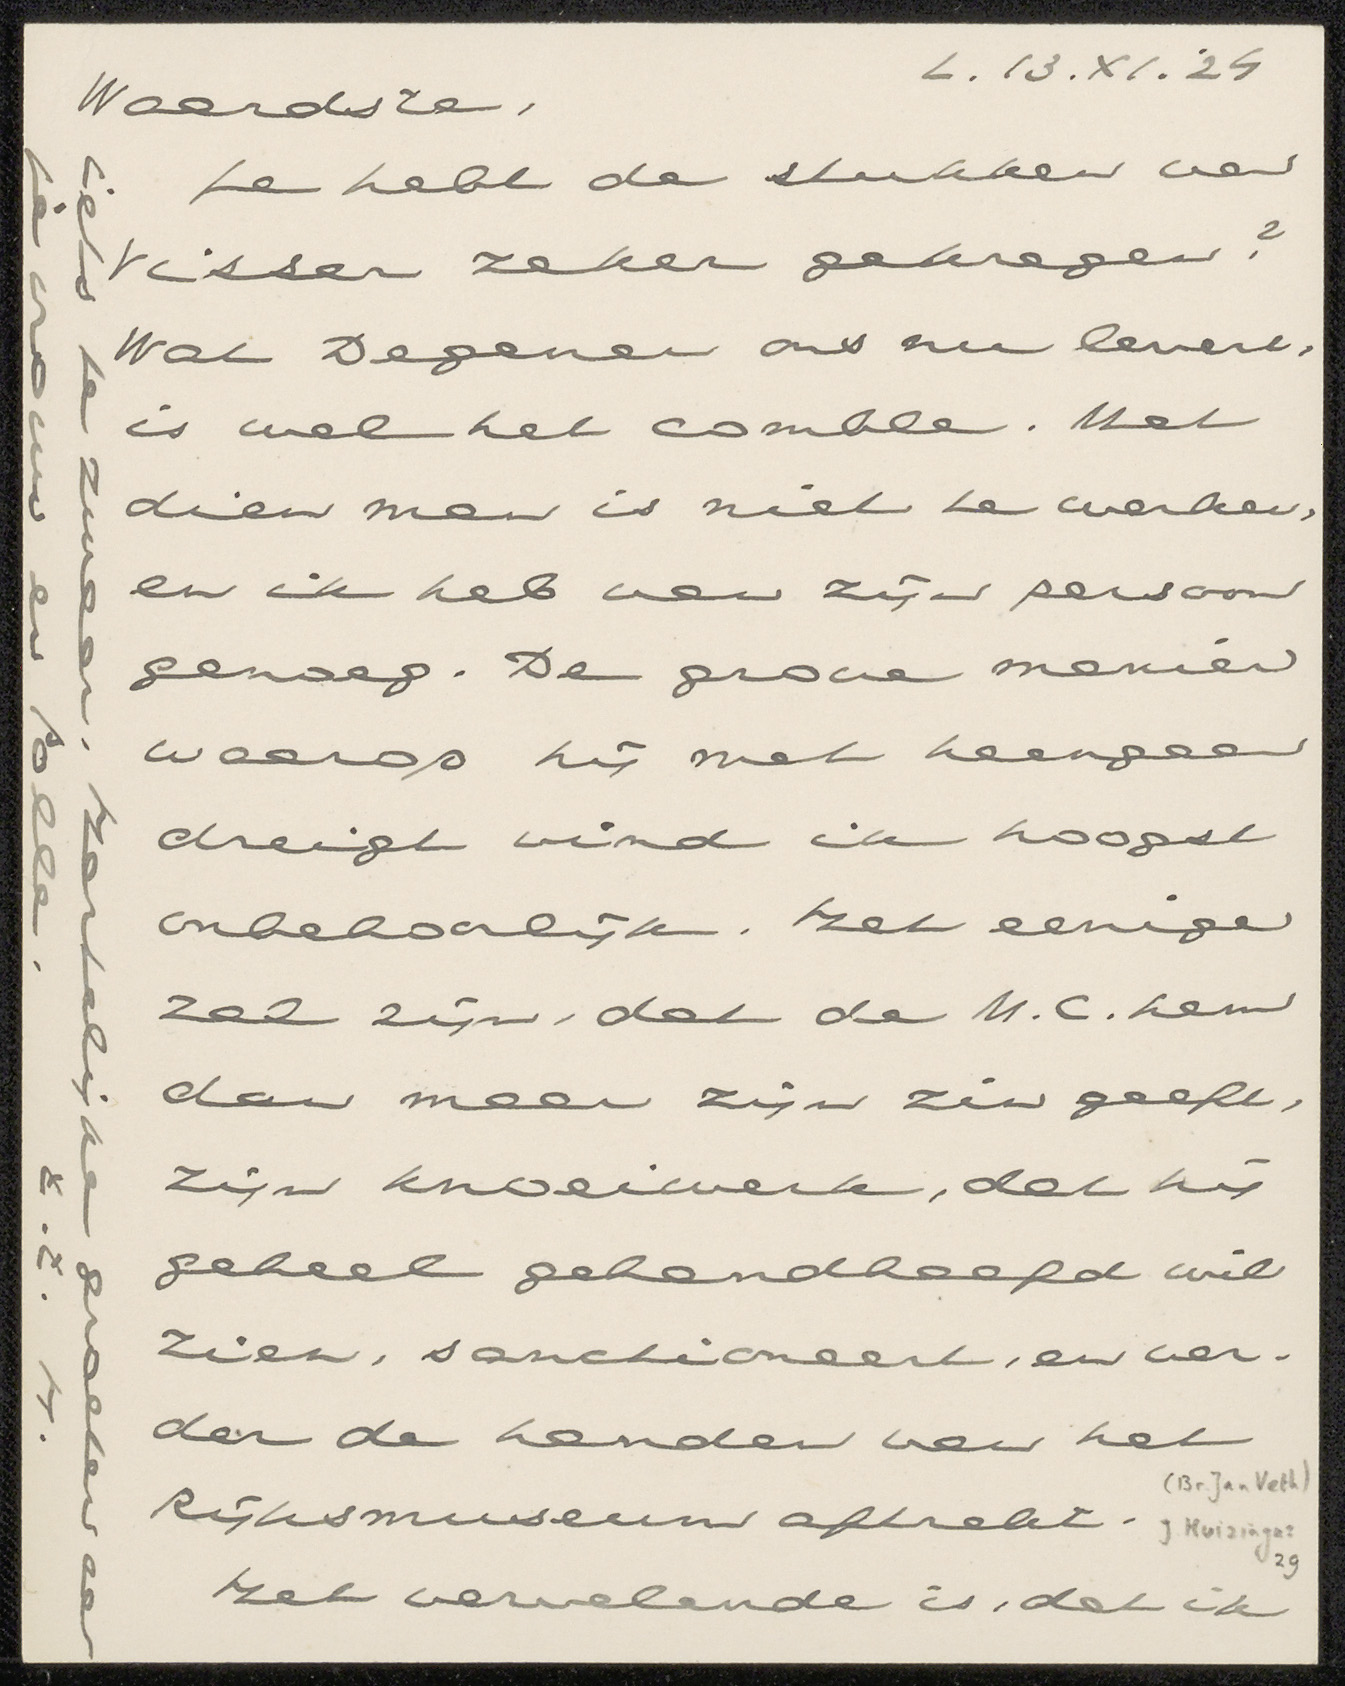 L. 13.XI.'24
Waardste,
Je hebt de stukken van
Visser zeker gekregen?
Wat Degener ons nu levert,
is wel het comble. Met
dien man is niet te werken,
en ik heb van zijn persoon
genoeg. De grove manier
waarop hij met heengaan
dreigt vind ik hoogst
onbehoorlijk. Het eenige
zal zijn, dat de M.C. hem
dan maar zijn zin geeft,
zijn knoeiwerk, dat hij
geheel gehandhaafd wil
zien, sanctioneert, en ver-
der de handen van het
Rijksmuseum aftrekt.
Het vervelende is, dat ik
(Br. Jan Veth)
J. Huizinga:
29
iets te zwaar. Hartelijke groeten aan
je vrouw en
t.t. H.